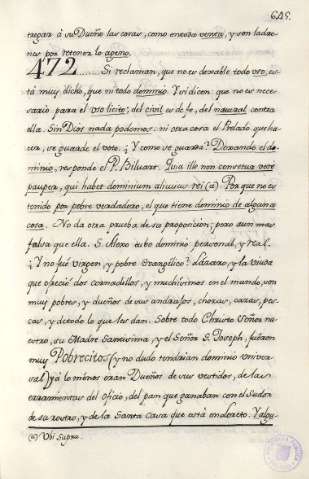 645.
tregar á su Dueño las casas, como enotra venta, y son ladro-
nes por retener lo ageno.
472..... Si reclaman, que no es durable todo uso, es-
tá muy dicho, que ni todo dominio. Y si dicen que no es nece-
sario para el uso licito, del civil es de fe, del natural contra
ella. Sin Dios nada podemos: ni otra cosa el Prelado que ha-
ra, se guarde el voto. ¿Y como se guarda? Dexando el do-
minio, responde el P. Billuart. Quia ille non censetur vere
pauper, qui habet dominium alicujus rei (a). Por que no es
tenido por pobre verdadero, el que tiene dominio de alguna
cosa. No da otra prueba de su proposicion; pero aun mas
falsa que ella. S. Alexo tubo dominio personal, y real.
¿Y no fué virgen, y pobre Evangélico? Lázaro, y la viuda
que ofreció dos cornadillos, y muchísimos en el mundo, son
muy pobres, y dueños de sus andrajos, chozas, casas, pe
cas, y de todo lo que les dan. Sobre todo Christo Señor nu-
estro, su Madre Santisima, y el Señor S. Joseph, fueron
muy Pobrecitos (y no dudo tendrian dominio univer-
sal) yá lo ménos eran Dueños de sus vestidos, de las
erramientas del oficio, del pan que ganaban con el sudor
de su rostro, y de la Santa Casa que está en Loreto. Y algu-
(a) Ubi supra.